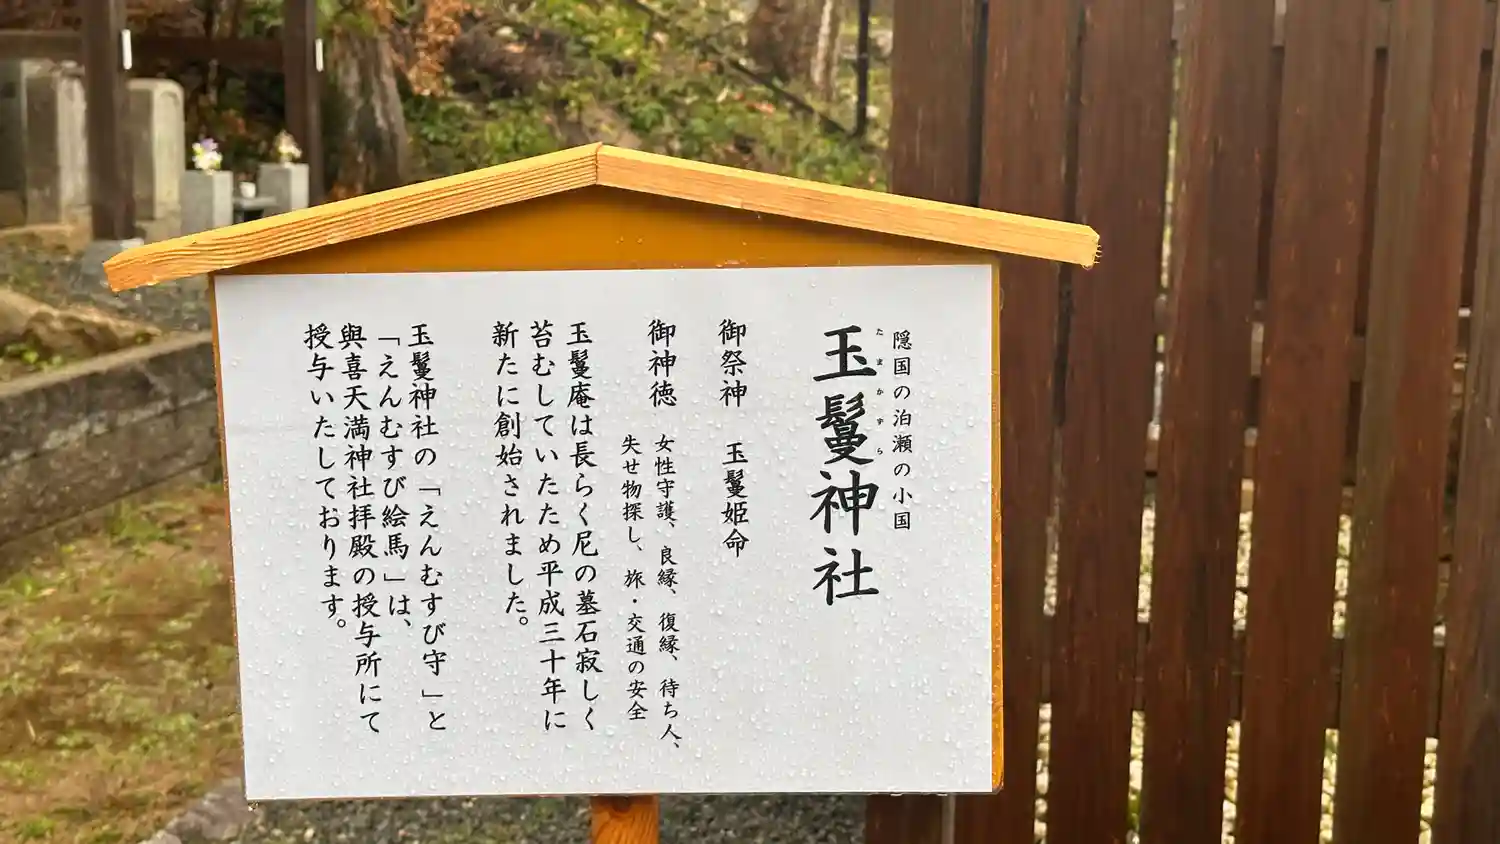 隠国の泊瀬の小国
たまかずら
玉鬘神社
御祭神　玉鬘姫命
御神徳　女性守護、良縁、復縁、待ち人、
失せ物探し、旅・交通の安全
玉鬘庵は長らく尼の墓石寂しく
苔むしていたため平成三十年に
新たに創始されました。
玉鬘神社の「えんむすび守」と
「えんむすび絵馬」は、
與喜天満神社拝殿の授与所にて
授与いたしております。